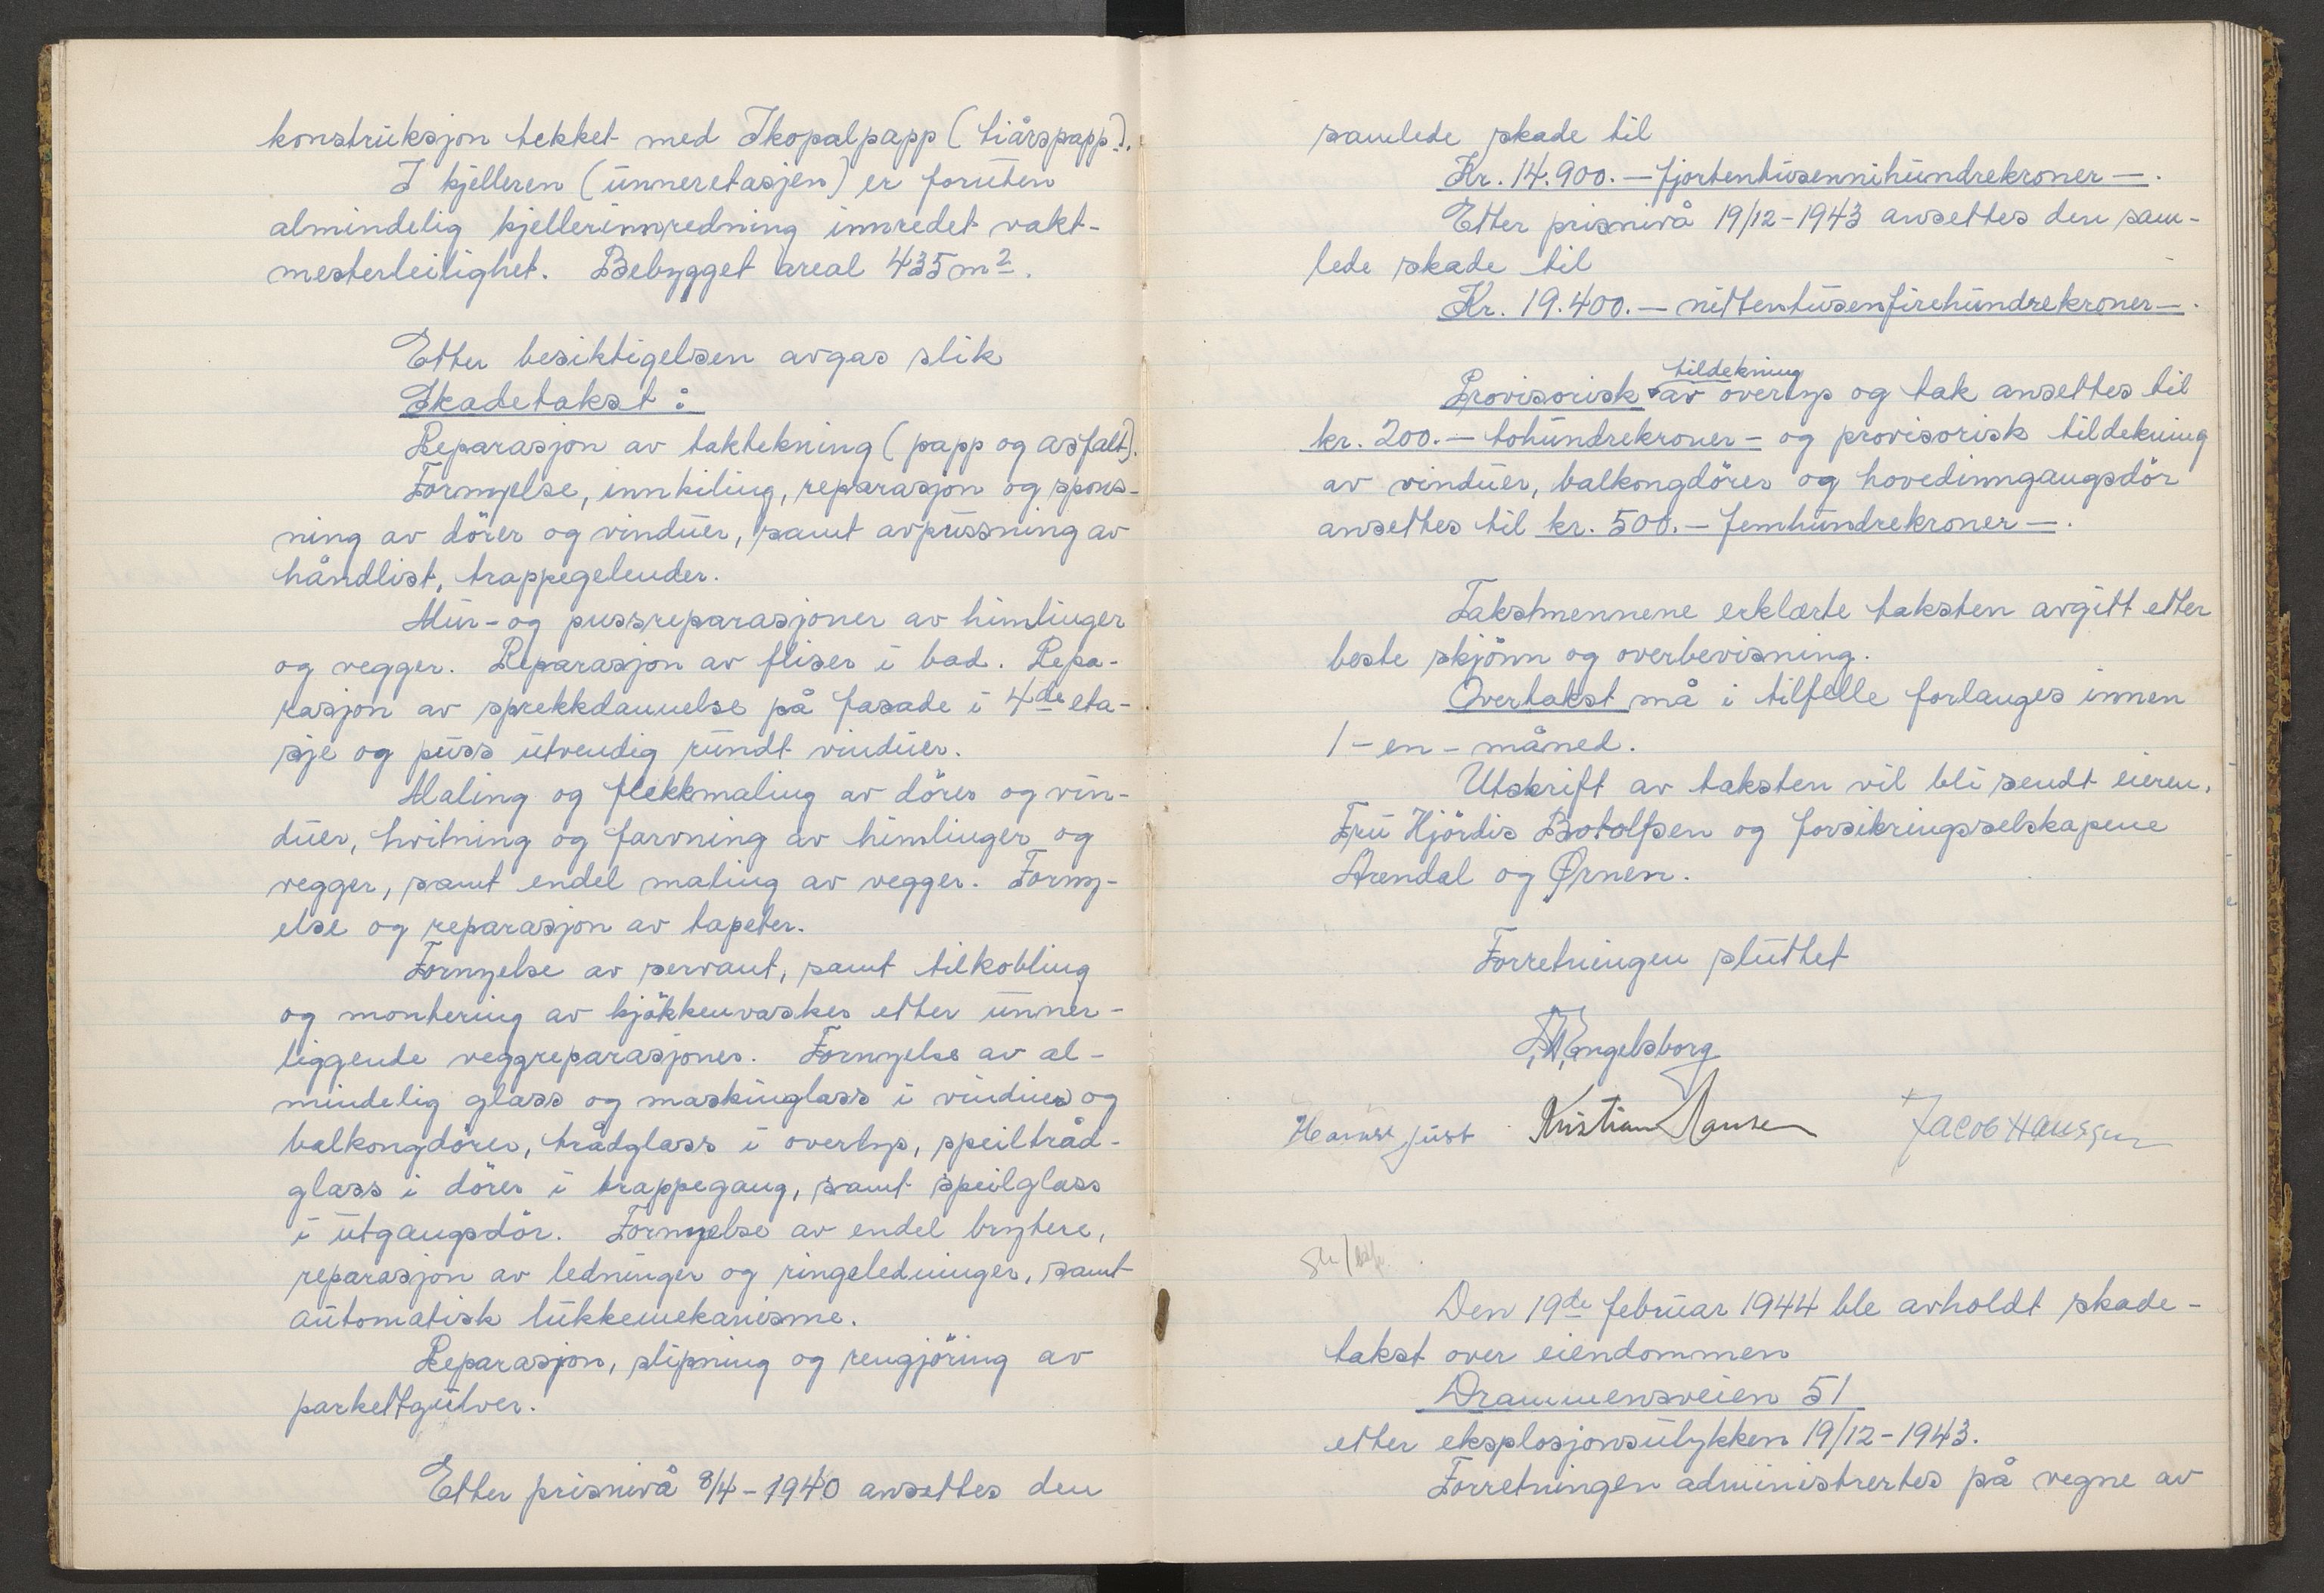 konstruksjon tekket med Ikopalpapp (tiårspapp).
I kjelleren (unneretasjen) er foruten
almindelig kjellerinnredning innredet vakt-
mesterleilighet. Bebygget areal 435 m².
Etter besiktigelsen avgas slik
Skadetakst:
Reparasjon av taktekning (papp og asfalt).
Fornyelse, innkiling, reparasjon og spons-
ning av dörer og vinduer, samt avpussning av
håndlist, trappegelender.
Mur- og pussreparasjoner av himlinger
og vegger. Reparasjon av fliser i bad. Repa-
rasjon av sprekkdannelse på fasade i 4de eta-
sje og puss utvendig rundt vinduer.
Maling og flekkmaling av dörer og vin-
duer, hvitning og farvning av himlinger og
vegger, samt endel maling av vegger. Forny-
else og reparasjon av tapeter.
Fornyelse av servant, samt tilkobling
og montering av kjökkenvasker etter unner-
liggende veggreparasjoner. Fornyelse av al-
mindelig glass og maskinglass i vinduer og
balkongdörer, trådglass i overlys, speiltråd-
glass i dörer i trappegang, samt speilglass
i utgangsdör. Fornyelse av endel brytere,
reparasjon av ledninger og ringeledninger, samt
automatisk lukkemekanisme.
Reparasjon, slipning og rengjöring av
parkettgulver.
Etter prisnivå 8/4-1940 ansettes den
samlede skade til
Kr. 14.900.— fjortentusennihundrekroner—.
Etter prisnivå 19/12-1943 ansettes den sam-
lede skade til
Kr. 19.400.— nittentusenfirehundrekroner—.
tildekning
Provisorisk av overlys og tak ansettes til
kr. 200.— tohundrekroner— og provisorisk tildekning
av vinduer, balkongdörer og hovedinngangsdör
ansettes til kr. 500.— femhundrekroner—.
Takstmennene erklærte taksten avgitt etter
beste skjönn og overbevisning.
Overtakst må i tilfelle forlanges innen
1-en-måned.
Utskrift av taksten vil bli sendt eieren,
Fru Hjördis Botolfsen og forsikringsselskapene
Arendal og Ørnen.
Forretningen sluttet
Engelsborg
Just Kristian Hansen Jacob Hanssen
Den 19de februar 1944 ble avholdt skade-
takst over eiendommen
Drammensveien 51
etter eksplosjonsulykken 19/12-1943.
Forretningen administrertes på vegne av